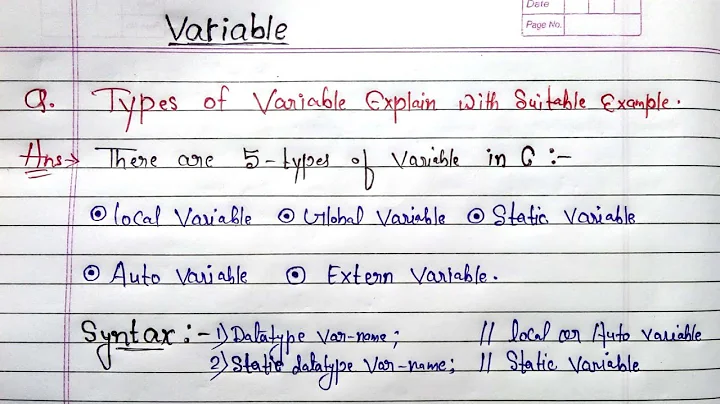 Date
Page No.
Variable
Q. Types of Variable Explain with Suitable Example.
Ans→ There are 5-types of Variable in C :-
⦿ local Variable ⦿ Global Variable ⦿ Static Variable
⦿ Auto Variable ⦿ Extern Variable.
Syntax :- 1) Datatype var-name; // local or Auto variable
2) Static datatype Var-name; // Static Variable